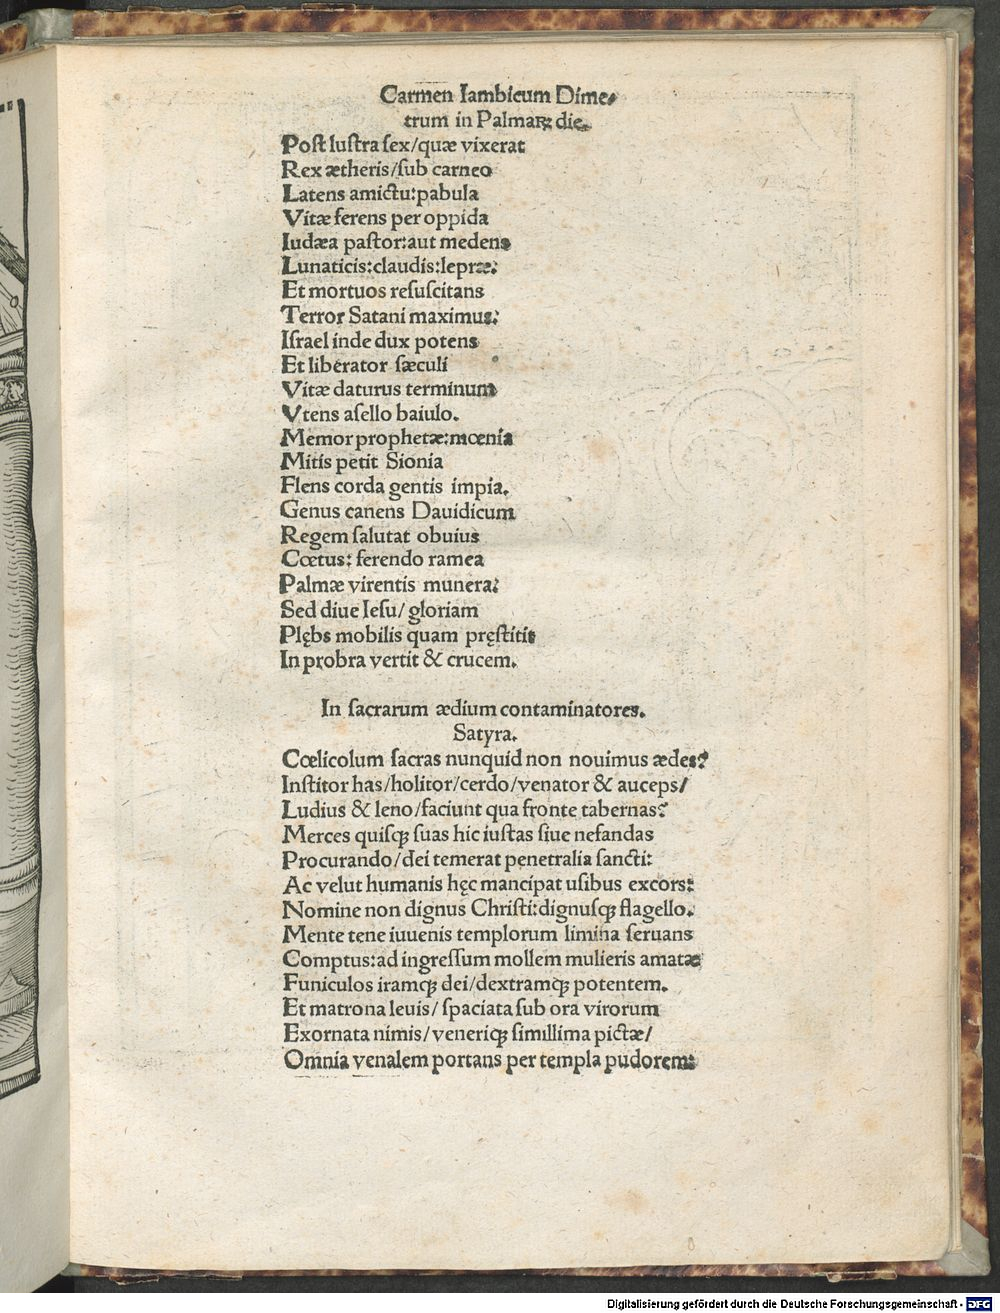 Carmen Iambicum Dime⸗
trum in Palmaꝝ die.
Poſt luſtra ſex/quæ vixerat
Rex ætheris/ſub carneo
Latens amictu:pabula
Vitæ ferens per oppida
Iudæa paſtor:aut medens
Lunaticis:claudis:lepræ:
Et mortuos reſuſcitans
Terror Satani maximus:
Iſrael inde dux potens
Et liberator ſæculi
Vitæ daturus terminum
Vtens aſello baiulo.
Memor prophetæ:mœnia
Mitis petit Sionia
Flens corda gentis impia.
Genus canens Dauidicum
Regem ſalutat obuius
Cœtus: ferendo ramea
Palmæ virentis munera:
Sed diue Ieſu/ gloriam
Plębs mobilis quam pręſtitit
In probra vertit & crucem.
In ſacrarum ædium contaminatores.
Satyra.
Cœlicolum ſacras nunquid non nouimus ædes?
Inſtitor has/holitor/cerdo/venator & auceps/
Ludius & leno/faciunt qua fronte tabernas?
Merces quiſqꝫ ſuas hic iuſtas ſiue nefandas
Procurando/dei temerat penetralia ſancti:
Ac velut humanis hęc mancipat uſibus excors:
Nomine non dignus Chriſti:dignuſqꝫ flagello.
Mente tene iuuenis templorum limina ſeruans
Comptus:ad ingreſſum mollem mulieris amatæ
Funiculos iramqꝫ dei/dextramqꝫ potentem.
Et matrona leuis/ ſpaciata ſub ora virorum
Exornata nimis/veneriqꝫ ſimillima pictæ/
Omnia venalem portans per templa pudorem:
Digitalisierung gefördert durch die Deutsche Forschungsgemeinschaft - DFG